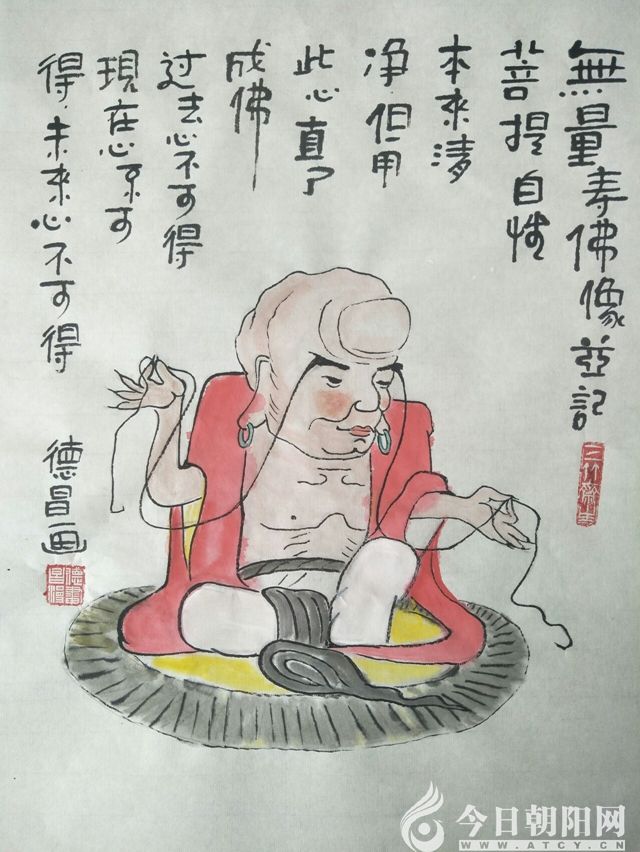 無量寿佛像並記
菩提自性
本来清
净·但用
此心直了
成佛
过去心不可得
現在心不可
得·未来心不可得
德昌画
今日朝阳网
WWW.ATCY.CN